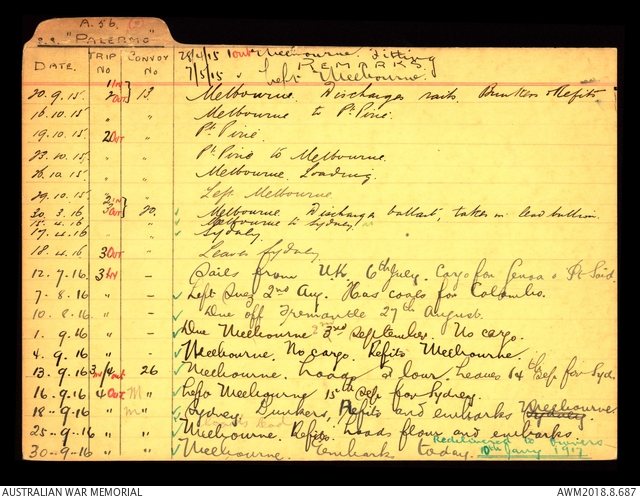 A.56. (2)
S.S. "PALERMO"
28/4/15 1 OUT Melbourne. Fitting
DATE. TRIP No CONVOY No REMARKS.
7/5/15 " Left Melbourne.
20.9.15. 1 IN 2 OUT } 13. Melbourne. Discharges Bunkers & Refits
16.10.15. " " Melbourne to Pt Pirie.
19.10.15. 2 OUT " Pt Pirie.
23.10.15. " " Pt Pirie to Melbourne.
26.10.15 " " Melbourne. Loading.
29.10.15. " " Left Melbourne
30.3.16 2 IN 3 OUT } 20. Melbourne Discharges ballast, takes in lead bullion.
15.4.16 " " Melbourne to Sydney
17.4.16 " Sydney.
18.4.16 3 OUT " Leaves Sydney
12.7.16 3 IN – Sails from U.K. 6th July. Cargo for Genoa & Pt Said.
7.8.16 " – Left Suez 2nd Aug. Has coals for Colombo.
10.8.16 " – Due off Fremantle 27th August.
1.9.16 " – Due Melbourne 3rd September. No cargo.
4.9.16 " – Melbourne. No cargo. Refits Melbourne.
13.9.16 3 IN / 4 OUT 26 Melbourne. Loads flour. Leaves 14th Sep for Syd.
16.9.16 4 OUT M " Left Melbourne 15th Sep for Sydney.
18.9.16 " M " Sydney. Bunkers, Refits and embarks Melbourne Sydney.
25.9.16 " " Melbourne. Refits, loads flour and embarks.
30.9.16 " " Melbourne Embarks today.
Redelivered to Owners
10th Jany 1917
AUSTRALIAN WAR MEMORIAL
AWM2018.8.687